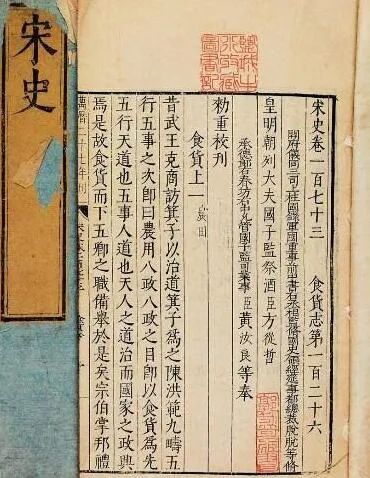 宋史
宋史卷一百七十三　食貨志第一百二十六
開府儀同三司上柱國錄軍國重事前中書右丞相監修國史領經筵事都總裁脫脫等修
皇明朝列大夫國子監祭酒臣方從哲
承德郎右春坊右中允管國子監司業事臣黃汝良等奉
勑重校刊
食貨上一 農田
昔武王克商訪箕子以治道箕子爲之陳洪範九疇五
行五事之次卽曰農用八政八政之目卽以食貨爲先
五行天道也五事人道也天人之道治而國家之政興
焉是故食貨而下五卿之職備舉於是矣宗伯掌邦禮
萬曆二十七年刊